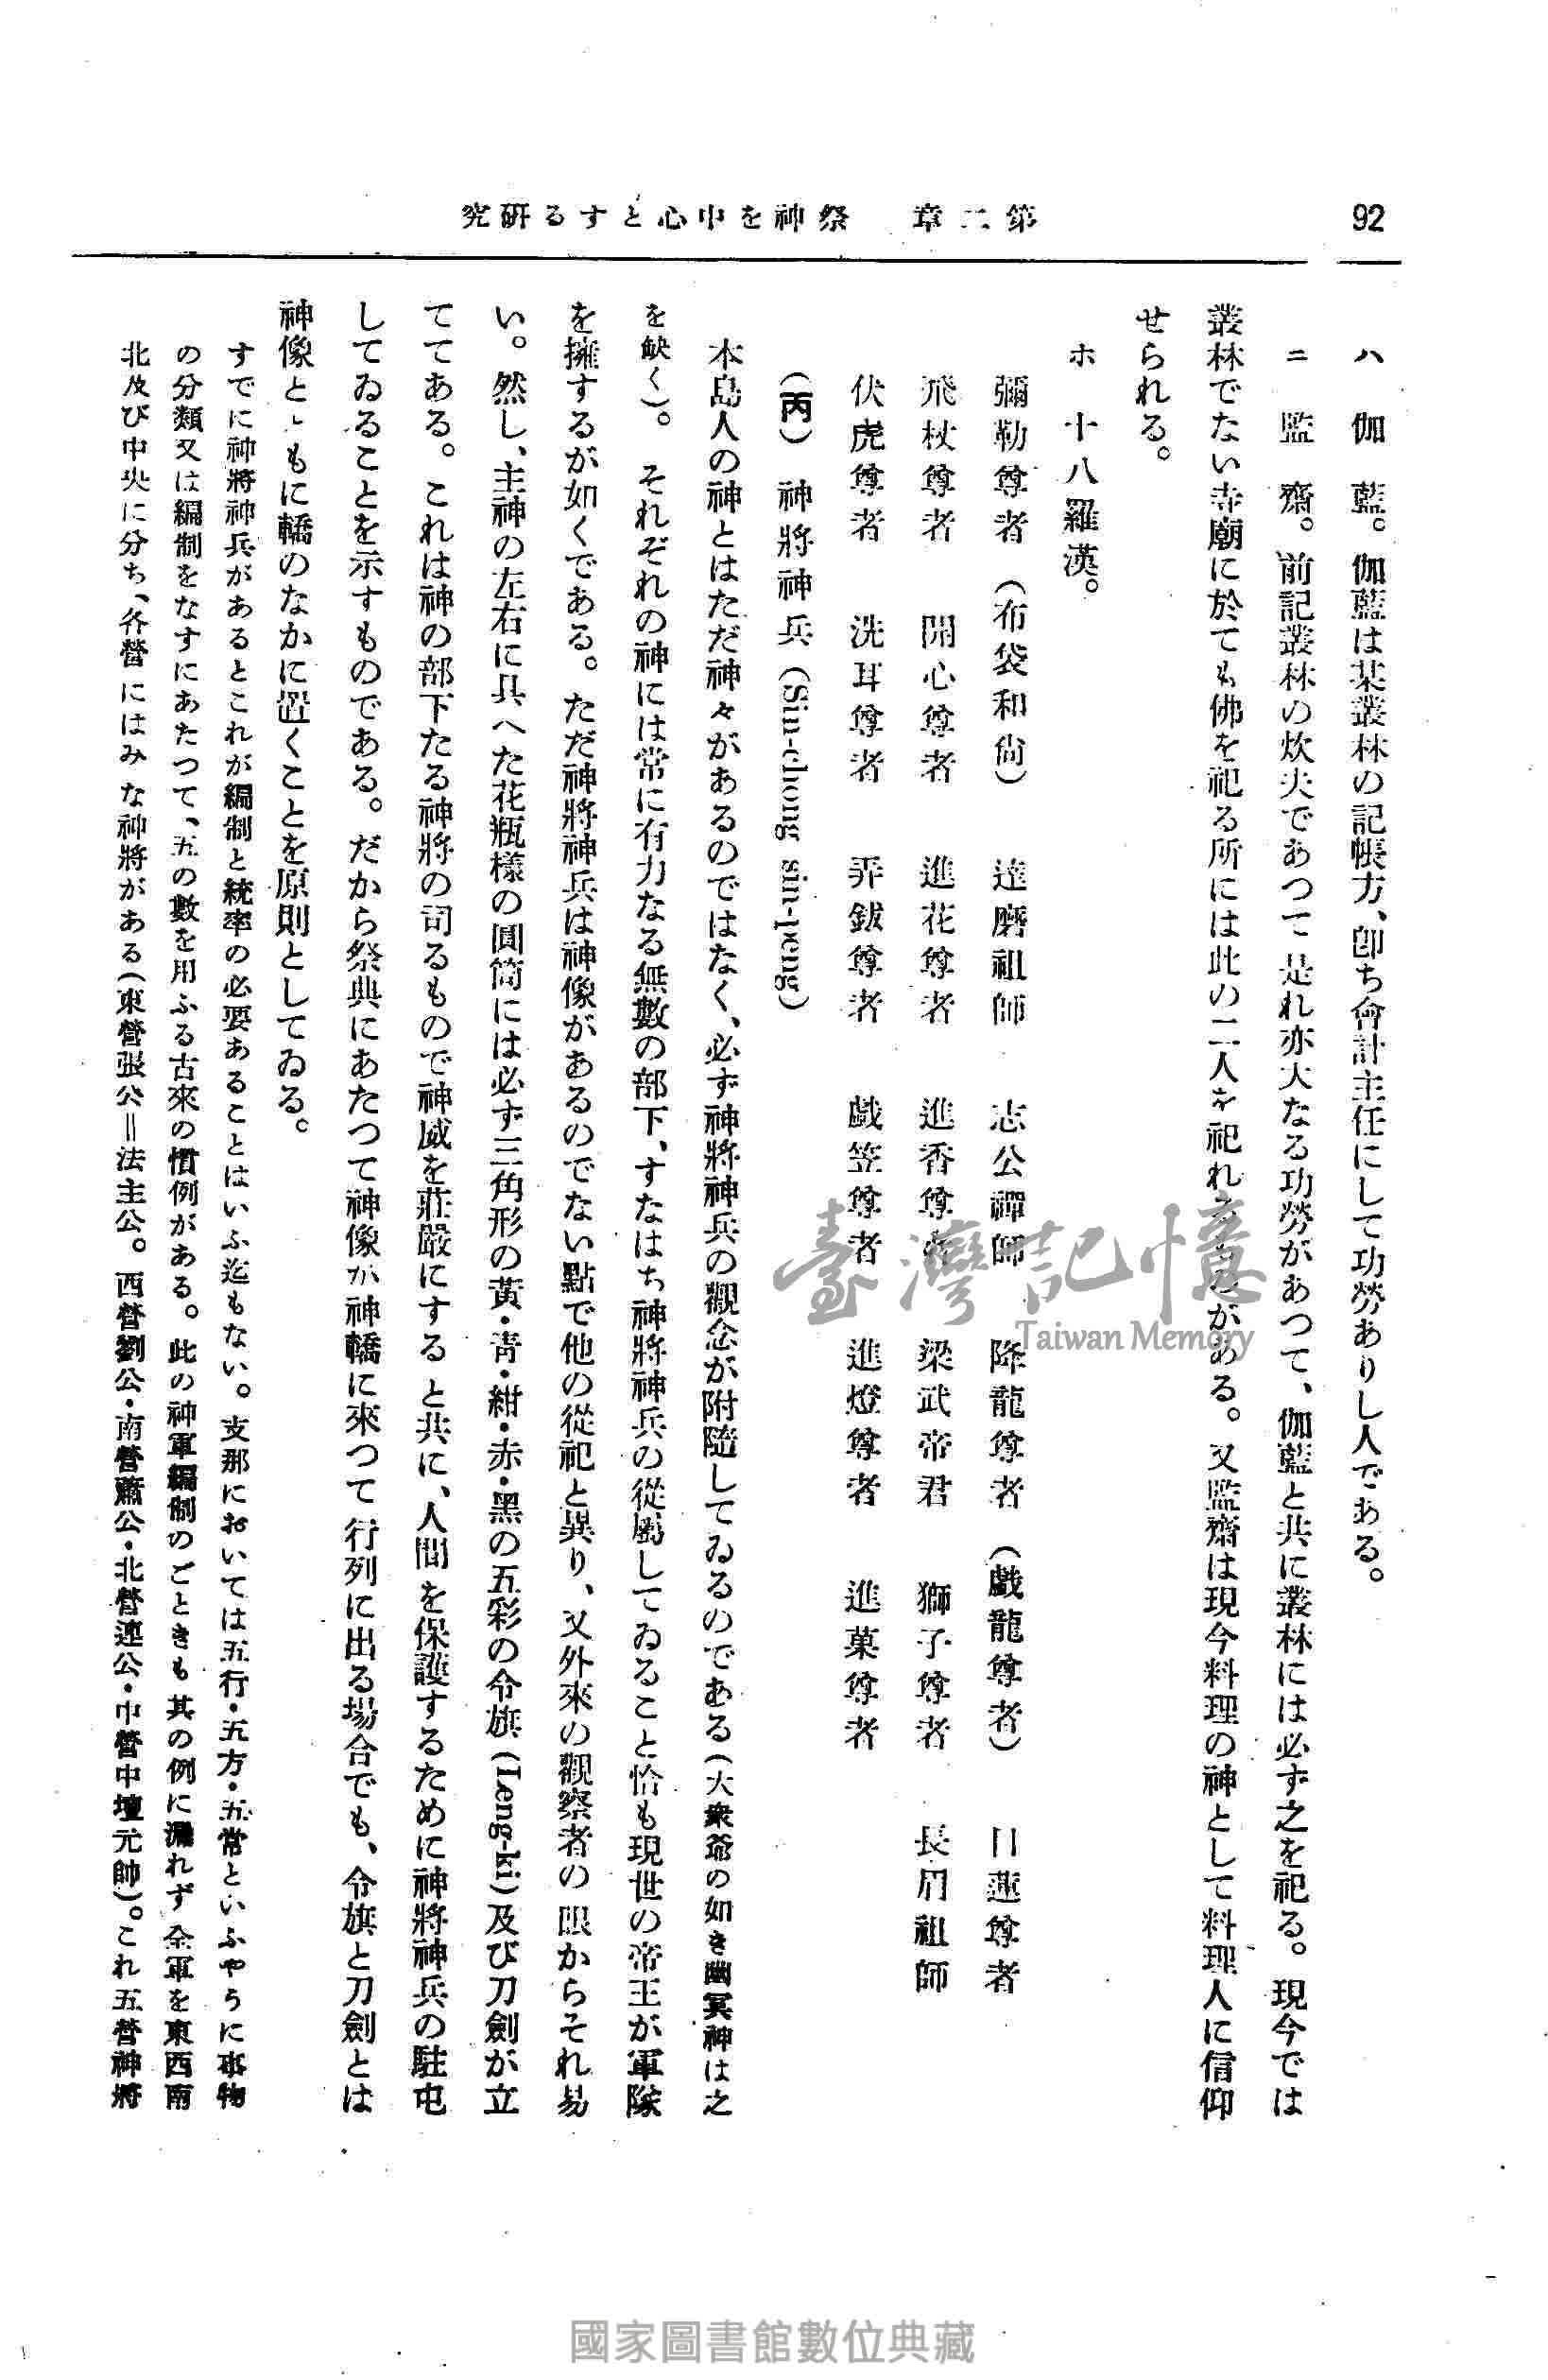 92
第二章 祭神を中心とする研究
ハ 伽 藍。伽藍は某叢林の記帳方、卽ち會計主任にして功勞ありし人である。
ニ 監 齋。前記叢林の炊夫であつて是れ亦大なる功勞があつて、伽藍と共に叢林には必ず之を祀る。現今では
叢林でない寺廟に於ても佛を祀る所には此の二人を祀れるものがある。又監齋は現今料理の神として料理人に信仰
せられる。
ホ 十八羅漢。
彌勒尊者(布袋和尙) 達磨祖師 志公禪師 降龍尊者(戲龍尊者) 目蓮尊者
飛杖尊者 開心尊者 進花尊者 進香尊者 梁武帝君 獅子尊者 長眉祖師
伏虎尊者 洗耳尊者 弄鈸尊者 戲笠尊者 進燈尊者 進菓尊者
(丙) 神將神兵(Sin-chong sin-peng)
本島人の神とはただ神々があるのではなく、必ず神將神兵の觀念が附隨してゐるのである(大衆爺の如き幽冥神は之
を缺く)。それぞれの神には常に有力なる無數の部下、すなはち神將神兵の從屬してゐること恰も現世の帝王が軍隊
を擁するが如くである。ただ神將神兵は神像があるのでない點で他の從祀と異り、又外來の觀察者の眼からそれ易
い。然し、主神の左右に具へた花瓶樣の圓筒には必ず三角形の黃・靑・紺・赤・黑の五彩の令旗(Leng-ki)及び刀劍が立
ててある。これは神の部下たる神將の司るもので神威を莊嚴にすると共に、人間を保護するために神將神兵の駐屯
してゐることを示すものである。だから祭典にあたつて神像が神轎に來つて行列に出る場合でも、令旗と刀劍とは
神像とともに轎のなかに置くことを原則としてゐる。
すでに神將神兵があるとこれが編制と統率の必要あることはいふ迄もない。支那においては五行・五方・五常といふやうに事物
の分類又は編制をなすにあたつて、五の數を用ふる古來の慣例がある。此の神軍編制のごときも其の例に漏れず全軍を東西南
北及び中央に分ち、各營にはみな神將がある(東營張公=法主公。西營劉公・南營蕭公・北營連公・中營中壇元帥)。これ五營神將
臺灣記憶
Taiwan Memory
國家圖書館數位典藏